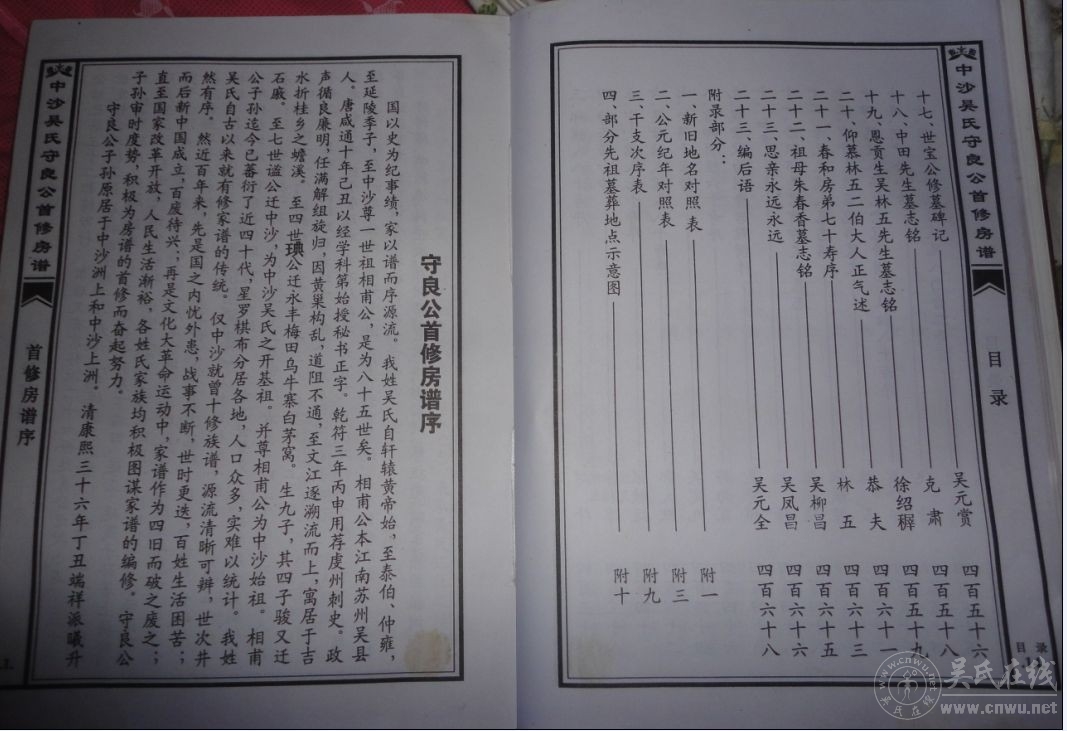 中沙吴氏守良公首修房谱
目录
十七、世宝公修墓碑记 吴元赏 四百五十六
十八、中田先生墓志铭 克肃 四百五十八
十九、恩贡生吴林五先生墓志铭 徐绍穉 四百五十九
二十、仰慕林五二伯大人正气述 恭夫 四百六十一
二十一、春和房弟七十寿序 林五 四百六十三
二十二、祖母朱春香墓志铭 吴柳昌 四百六十五
二十三、思亲永远永远 吴凤昌 四百六十六
二十三、编后语 吴元全 四百六十八
附录部分：
一、新旧地名对照表 附一
二、公元纪年对照表 附三
三、干支次序表 附九
四、部分先祖墓葬地点示意图 附十
目录
守良公首修房谱序
国以史为纪事绩，家以谱而序源流。我姓吴氏自轩辕黄帝始，至泰伯、仲雍，
至延陵季子，至中沙尊一世祖相甫公，是为八十五世矣。相甫公本江南苏州吴县
人。唐咸通十年己丑以经学科第始授秘书正字。乾符三年丙申用荐虔州刺史。政
声循良廉明，任满解组旋归，因黄巢构乱，道阻不通，至文江逐溯流而上，寓居于吉
水折桂乡之蟾溪。至四世琠公迁永丰梅田乌牛寨白茅窝。生九子，其四子骏又迁
石戚。至七世谥公迁中沙，为中沙吴氏之开基祖。并尊相甫公为中沙始祖。相甫
公子孙迄今已蕃衍了近四十代，星罗棋布分居各地，人口众多，实难以统计。我姓
吴氏自古以来就有修家谱的传统。仅中沙就曾十修族谱，源流清晰可辨，世次井
然有序。然近百年来，先是国之内忧外患，战事不断，世时更迭，百姓生活困苦；
而后新中国成立，百废待兴；再是文化大革命运动中，家谱作为四旧而破之废之；
直至国家改革开放，人民生活渐裕，各姓氏家族均积极图谋家谱的编修。守良公
子孙审时度势，积极为房谱的首修而奋起努力。
守良公子孙原居于中沙洲上和中沙上洲。清康熙三十六年丁丑端祥派曦升
中沙吴氏守良公首修房谱
首修房谱序
上
吴氏在线
www.cnwu.net